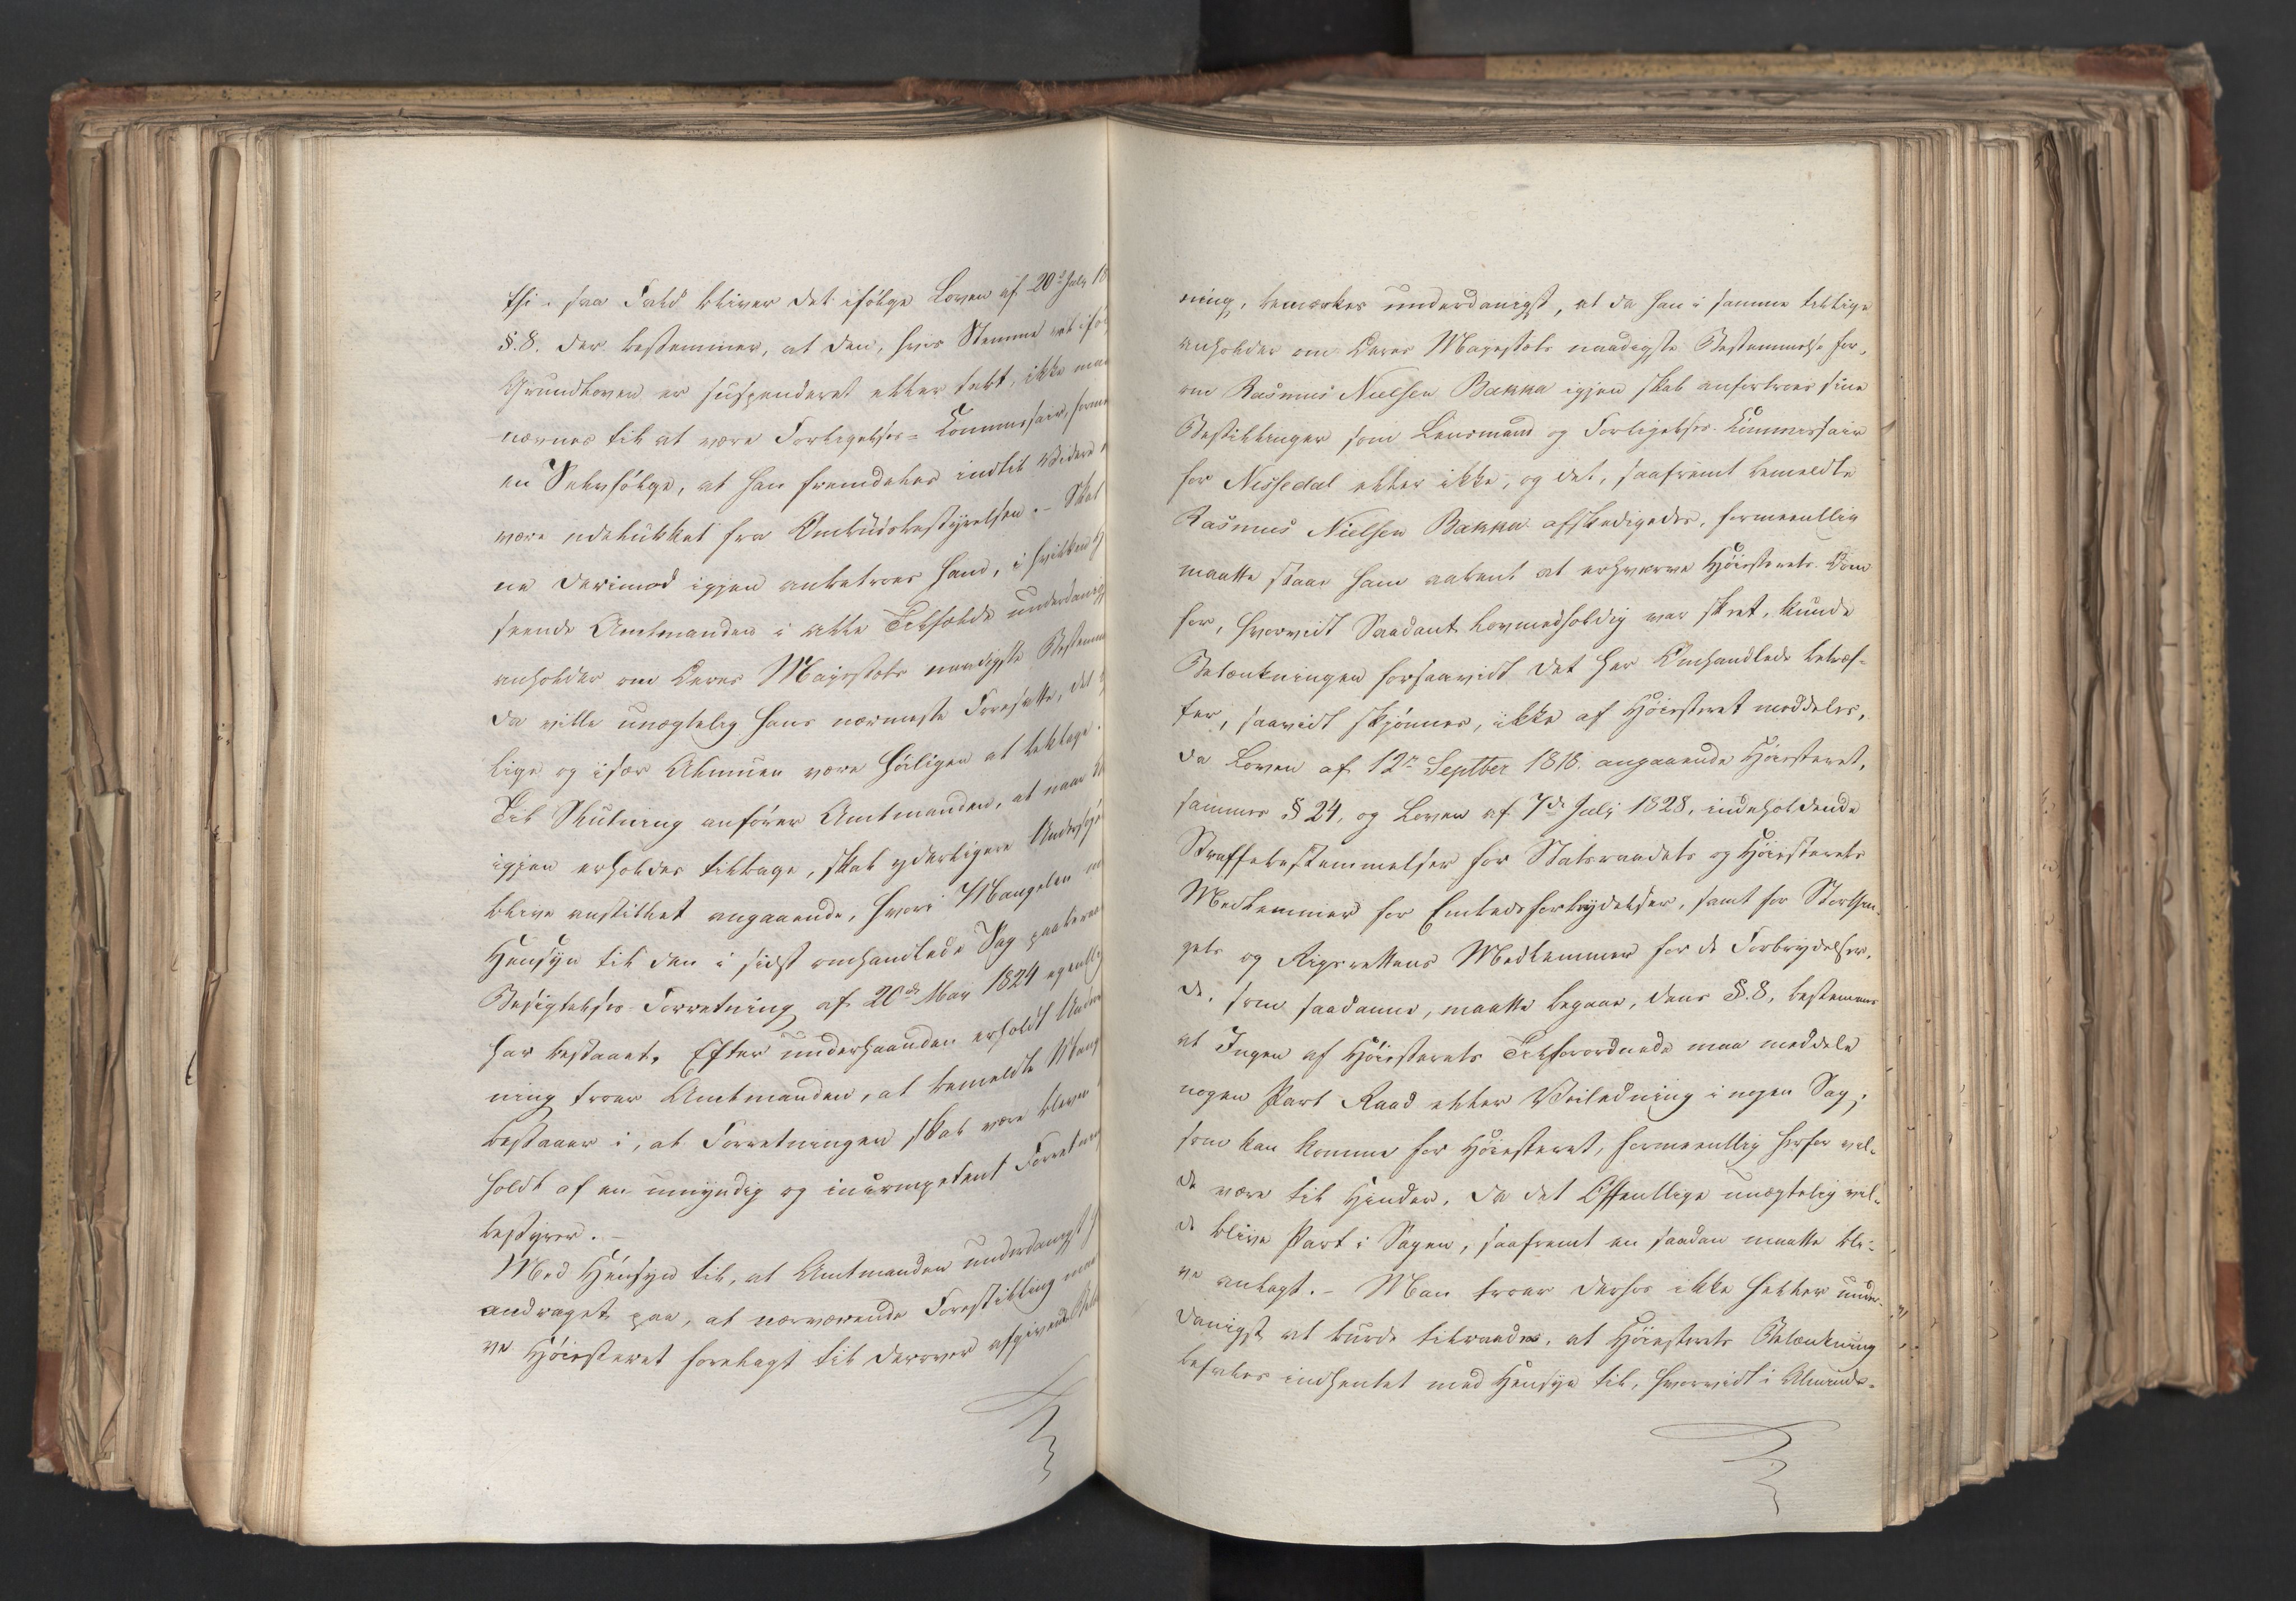 thi. saa Fald bliver det ifølge Loven af 20de July 18
§. 8. der bestemmer, at den, hvis Stemme
Grundloven er suspenderet eller tabt, ikke maa
nævnes til at være Forligelses-Kommissair,
en Selvfølge, at han fremdeles indtil Videre
være udelukket fra Ombudsbestyrelsen. - Skal
ne derimod igjen anbetroes ham, i hvilken
seende Amtmanden i alle Tilfælde underdanigst
anholder om Deres Majestæts naadigste Bestemm
da ville unægtelig hans nærmeste Foresatte, det
lige og især Almuen være høiligen at beklage.
Til Slutning anfører Amtmanden, at naar
igjen erholdes tilbage, skal yderligere Undersøg
blive anstillet angaaende, hvori Mangelen
Hensyn til den i sidst omhandlede Sag
Besigtelses-Forretning af 20de May 1824 egentlig
har bestaaet. Efter underhaanden erholdt Under
ning troer Amtmanden, at bemeldte Mang
bestaaer i, at Forretningen skal være bleven
holdt af en umyndig og incompetent Forretnings
bestyrer. -
Med Hensyn til, at Amtmanden underdanigst
andraget paa, at nærværende Forestilling maa
ve Høiesteret forelagt til derover afgivende
ning, bemærkes underdanigst, at da han i samme tillige
anholder om Deres Majestæts naadigste Bestemmelse for,
om Rasmus Nielsen Bakka igjen skal anfortroes sine
Bestillinger som Lensmand og Forligelses-Commissair
for Nessedal eller ikke, og det, saafremt bemeldte
Rasmus Nielsen Bakka afskedigedes, formeentlig
maatte staae ham aabent at erhverve Høiesterets Dom
for, hvorvidt Saadant lovmedholdig var skeet, kunde
Betænkningen forsaavidt det her Omhandlede betræf-
fer, saavidt skjønnes, ikke af Høiesteret meddeles,
da Loven af 12te Septber 1818. angaaende Høiesteret,
sammes § 24, og Loven af 7de July 1828, indeholdende
Straffebestemmelser for Statsraadets og Høiesterets
Medlemmer for Embedsforbrydelser, samt for Storthin-
gets og Rigsrettens Medlemmer for de Forbrydelser,
de, som saadanne, maatte begaae, dens §. 8, bestemmer
at Ingen af Høiesterets Tilforordnede maa meddele
nogen Part Raad eller Veiledning i nogen Sag,
som kan komme for Høiesteret, formeentlig herfor vil-
de være til Hinder, da det Offentlige unægtelig vil-
de blive Part i Sagen, saafremt en saadan maatte bli-
ve anlagt. - Man troer derfor ikke heller under-
danigst at burde tilraade, at Høiesterets Betænkning
befales indhentet med Hensyn til, hvorvidt i Alminde-